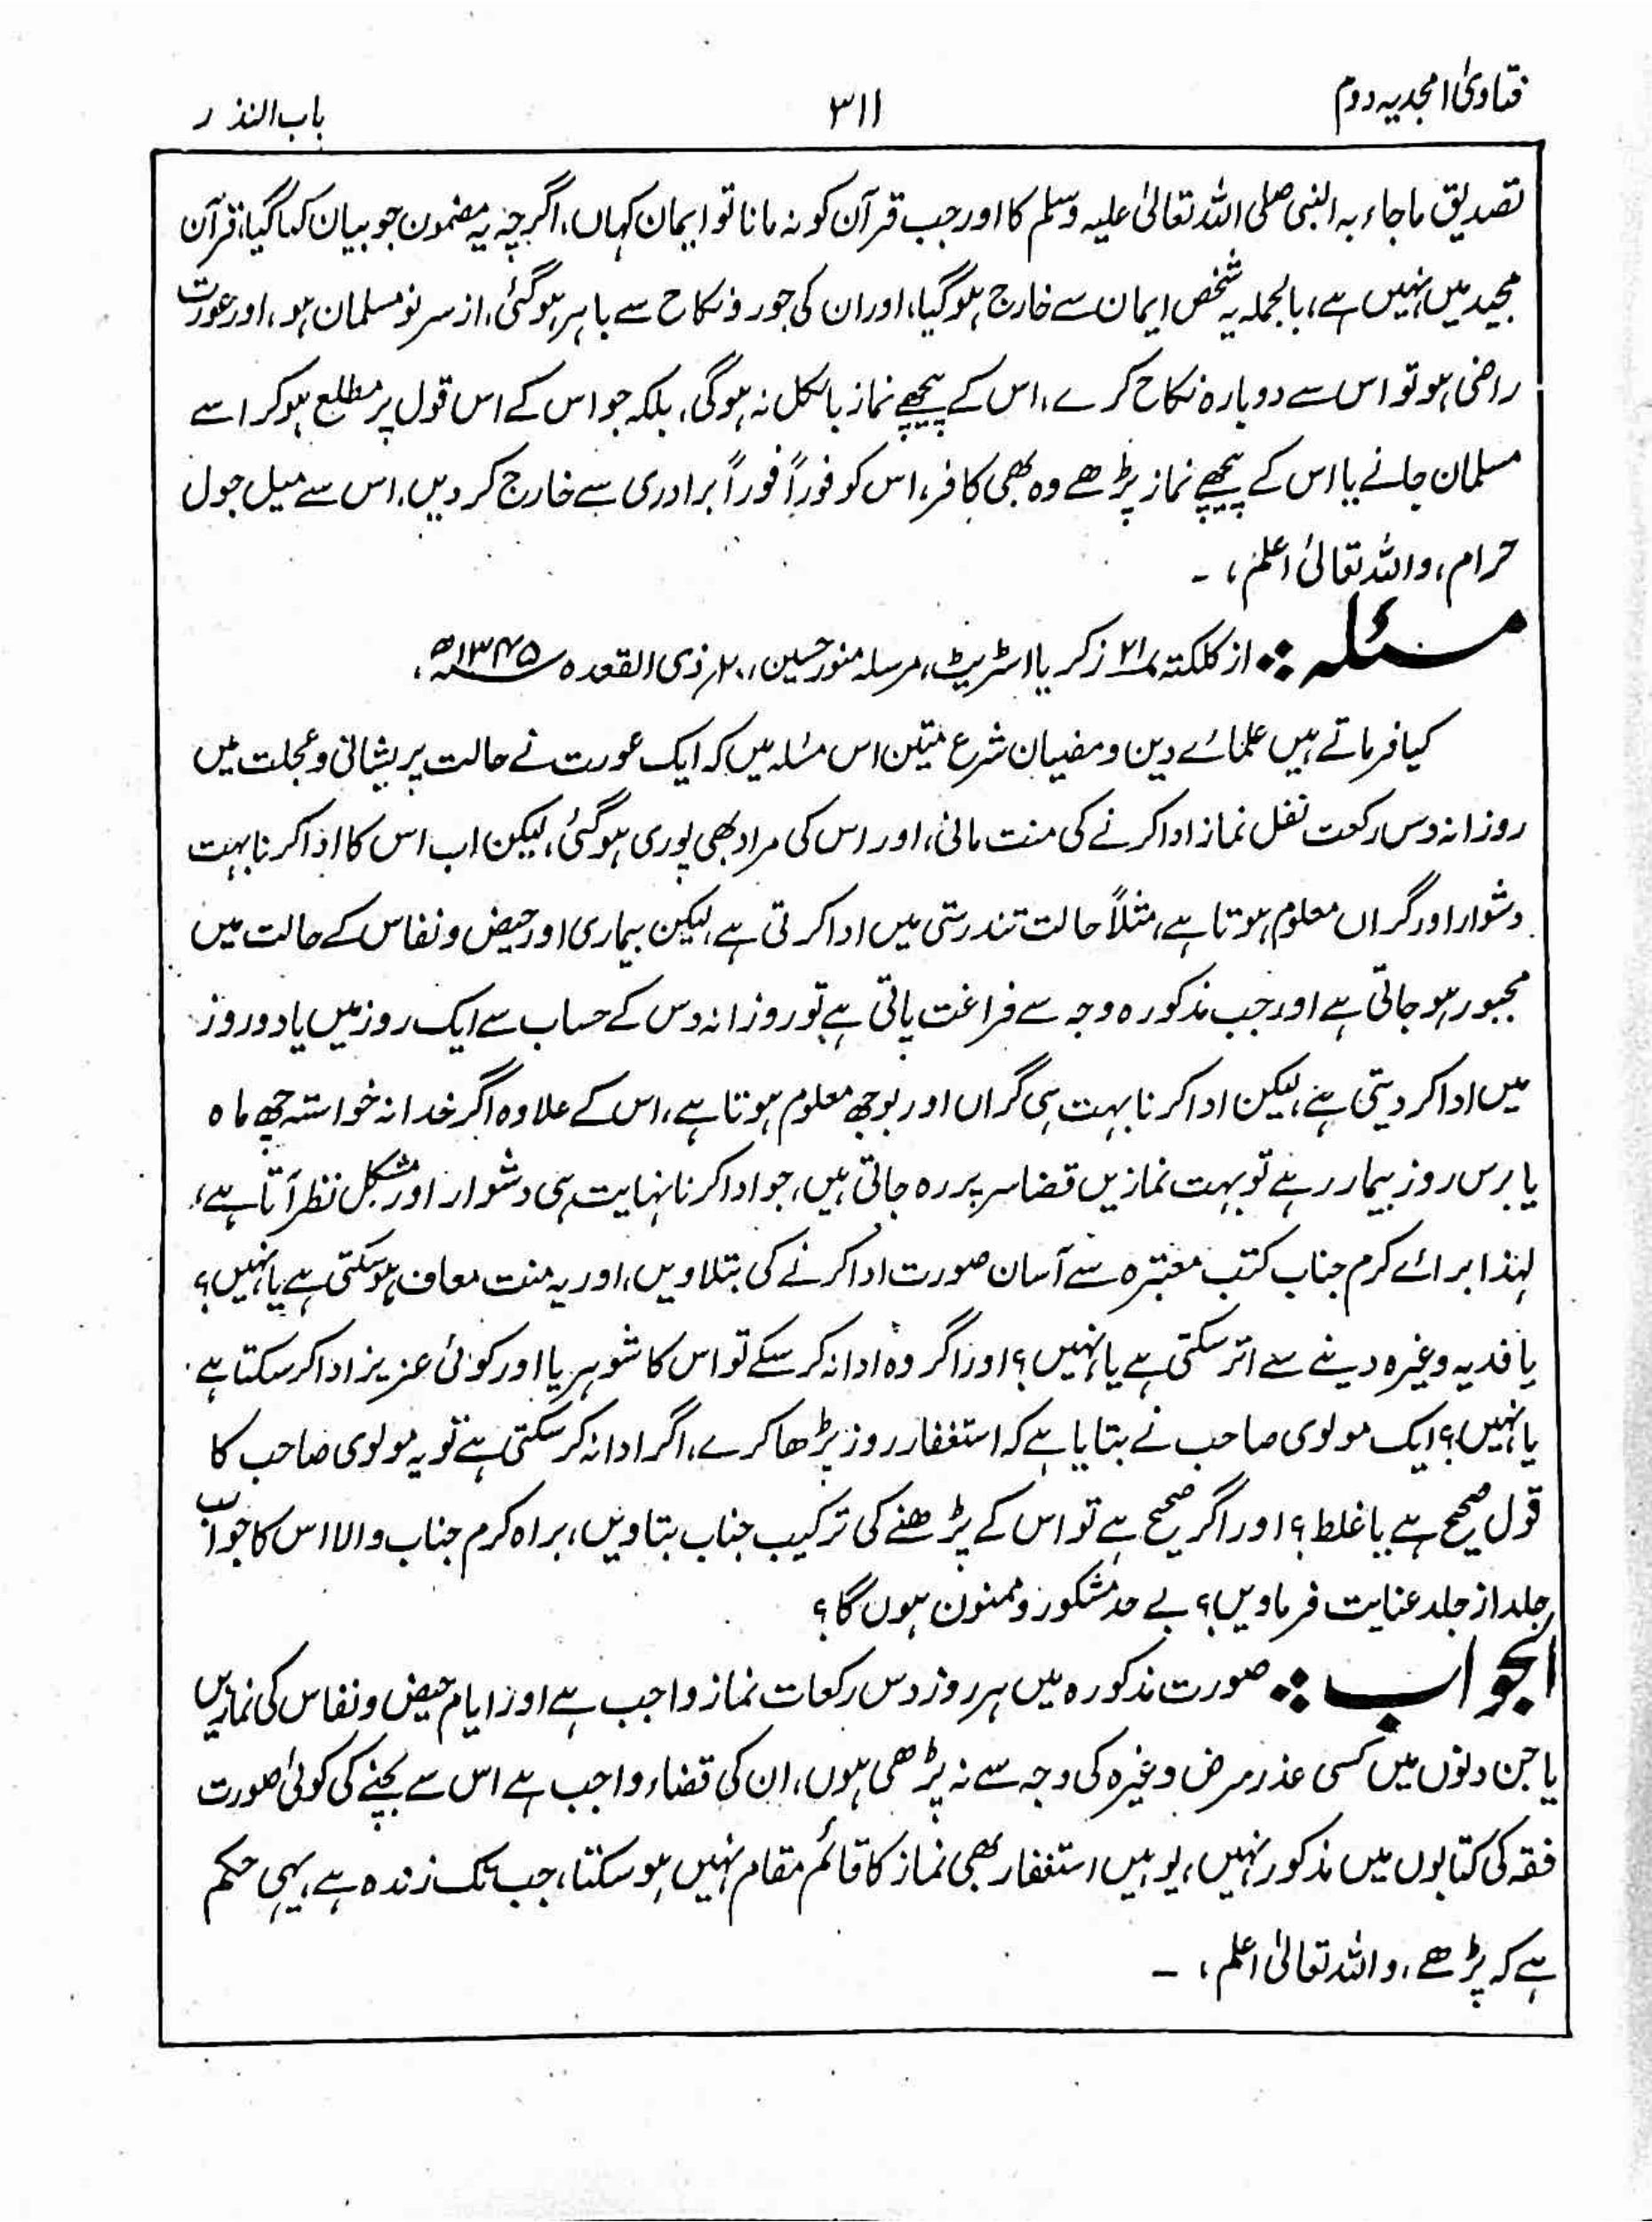 فتاویٰ امجدیہ دوم ۳۱۱ باب النذر
تصدیق ماجاء بہ النبی صلی اللہ تعالیٰ علیہ وسلم کا اور جب قرآن کو نہ مانا تو ایمان کہاں، اگرچہ یہ مضمون جو بیان کیا گیا، قرآن
مجید میں نہیں ہے، بالجملہ یہ شخص ایمان سے خارج ہوگیا، اور ان کی جورو نکاح سے باہر ہوگئی، از سر نو مسلمان ہو، اور عورت
راضی ہو تو اس سے دوبارہ نکاح کرے، اس کے پیچھے نماز بالکل نہ ہوگی، بلکہ جو اس کے اس قول پر مطلع ہوکر اسے
مسلمان جانے یا اس کے پیچھے نماز پڑھے وہ بھی کافر، اس کو فوراً فوراً برادری سے خارج کردیں، اس سے میل جول
حرام، واللہ تعالیٰ اعلم، ۔
مسئلہ :: از کلکتہ ۲۱ زکریا اسٹریٹ، مرسلہ منور حسین، ۲۰؍ ذی القعدہ ۱۳۴۵ھ،
کیا فرماتے ہیں علمائے دین و مفتیان شرع متین اس مسٔلہ میں کہ ایک عورت نے حالت پریشانی و عجلت میں
روزانہ دس رکعت نفل نماز ادا کرنے کی منت مانی، اور اس کی مراد بھی پوری ہوگئی، لیکن اب اس کا ادا کرنا بہت
دشوار اور گراں معلوم ہوتا ہے، مثلاً حالت تندرستی میں ادا کرتی ہے، لیکن بیماری اور حیض و نفاس کے حالت میں
مجبور ہو جاتی ہے اور جب مذکورہ وجہ سے فراغت پاتی ہے تو روزانہ دس کے حساب سے ایک روز میں یا دو روز
میں ادا کر دیتی ہے، لیکن ادا کرنا بہت ہی گراں اور بوجھ معلوم ہوتا ہے، اس کے علاوہ اگر خدا نہ خواستہ چھ ماہ
یا برس روز بیمار رہے تو بہت نمازیں قضا سر پر رہ جاتی ہیں، جو ادا کرنا نہایت ہی دشوار اور مشکل نظر آتا ہے،
لہٰذا برائے کرم جناب کتب معتبرہ سے آسان صورت ادا کرنے کی بتلاویں، اور یہ منت معاف ہوسکتی ہے یا نہیں؟
یا فدیہ وغیرہ دینے سے اتر سکتی ہے یا نہیں؟ اور اگر وہ ادا نہ کرسکے تو اس کا شوہر یا اور کوئی عزیز ادا کرسکتا ہے
یا نہیں؟ ایک مولوی صاحب نے بتایا ہے کہ استغفار روز پڑھا کرے، اگر ادا نہ کرسکتی ہے تو یہ مولوی صاحب کا
قول صحیح ہے یا غلط؟ اور اگر صحیح ہے تو اس کے پڑھنے کی ترکیب جناب بتاویں، براہ کرم جناب والا اس کا جواب
جلد از جلد عنایت فرماویں؟ بے حد مشکور و ممنون ہوں گا؟
الجواب :: صورت مذکورہ میں ہر روز دس رکعات نماز واجب ہے اور ایام حیض و نفاس کی نمازیں
یا جن دنوں میں کسی عذر مرض وغیرہ کی وجہ سے نہ پڑھی ہوں، ان کی قضاء واجب ہے اس سے بچنے کی کوئی صورت
فقہ کی کتابوں میں مذکور نہیں، یوہیں استغفار بھی نماز کا قائم مقام نہیں ہوسکتا، جب تک زندہ ہے، یہی حکم
ہے کہ پڑھے، واللہ تعالیٰ اعلم، ۔